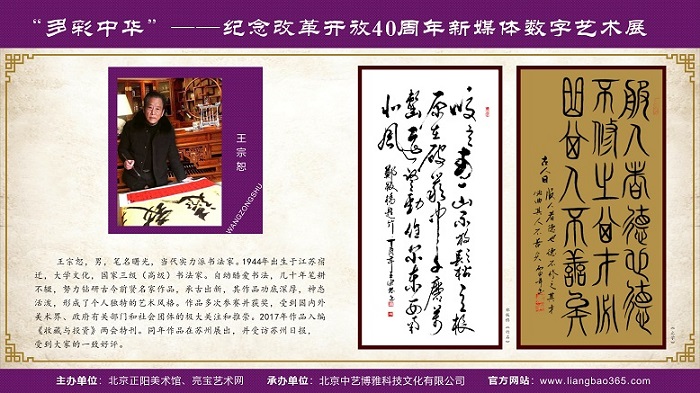 “多彩中华”——纪念改革开放40周年新媒体数字艺术展
王宗恕
WANGZONGSHU
王宗恕，男，笔名曙光，当代实力派书法家。1944年出生于江苏宿
迁，大学文化，国家三级（高级）书法家。自幼酷爱书法，几十年笔耕
不辍，努力钻研古今前贤名家作品，承古出新，其作品功底深厚，神态
活泼，形成了个人独特的艺术风格。作品多次参赛并获奖，受到国内外
美术界、政府有关部门和社会团体的极大关注和推崇。2017年作品入编
《收藏与投资》两会特刊。同年作品在苏州展出，并受访苏州日报，
受到大家的一致好评。
咬定青山不放鬆立根
原在破岩中千磨萬
擊還堅勁任尔东西南
北風
服人者德也德
古人曰
主办单位：北京正阳美术馆、亮宝艺术网
承办单位：北京中艺博雅科技文化有限公司
官方网站：www.liangbao365.com